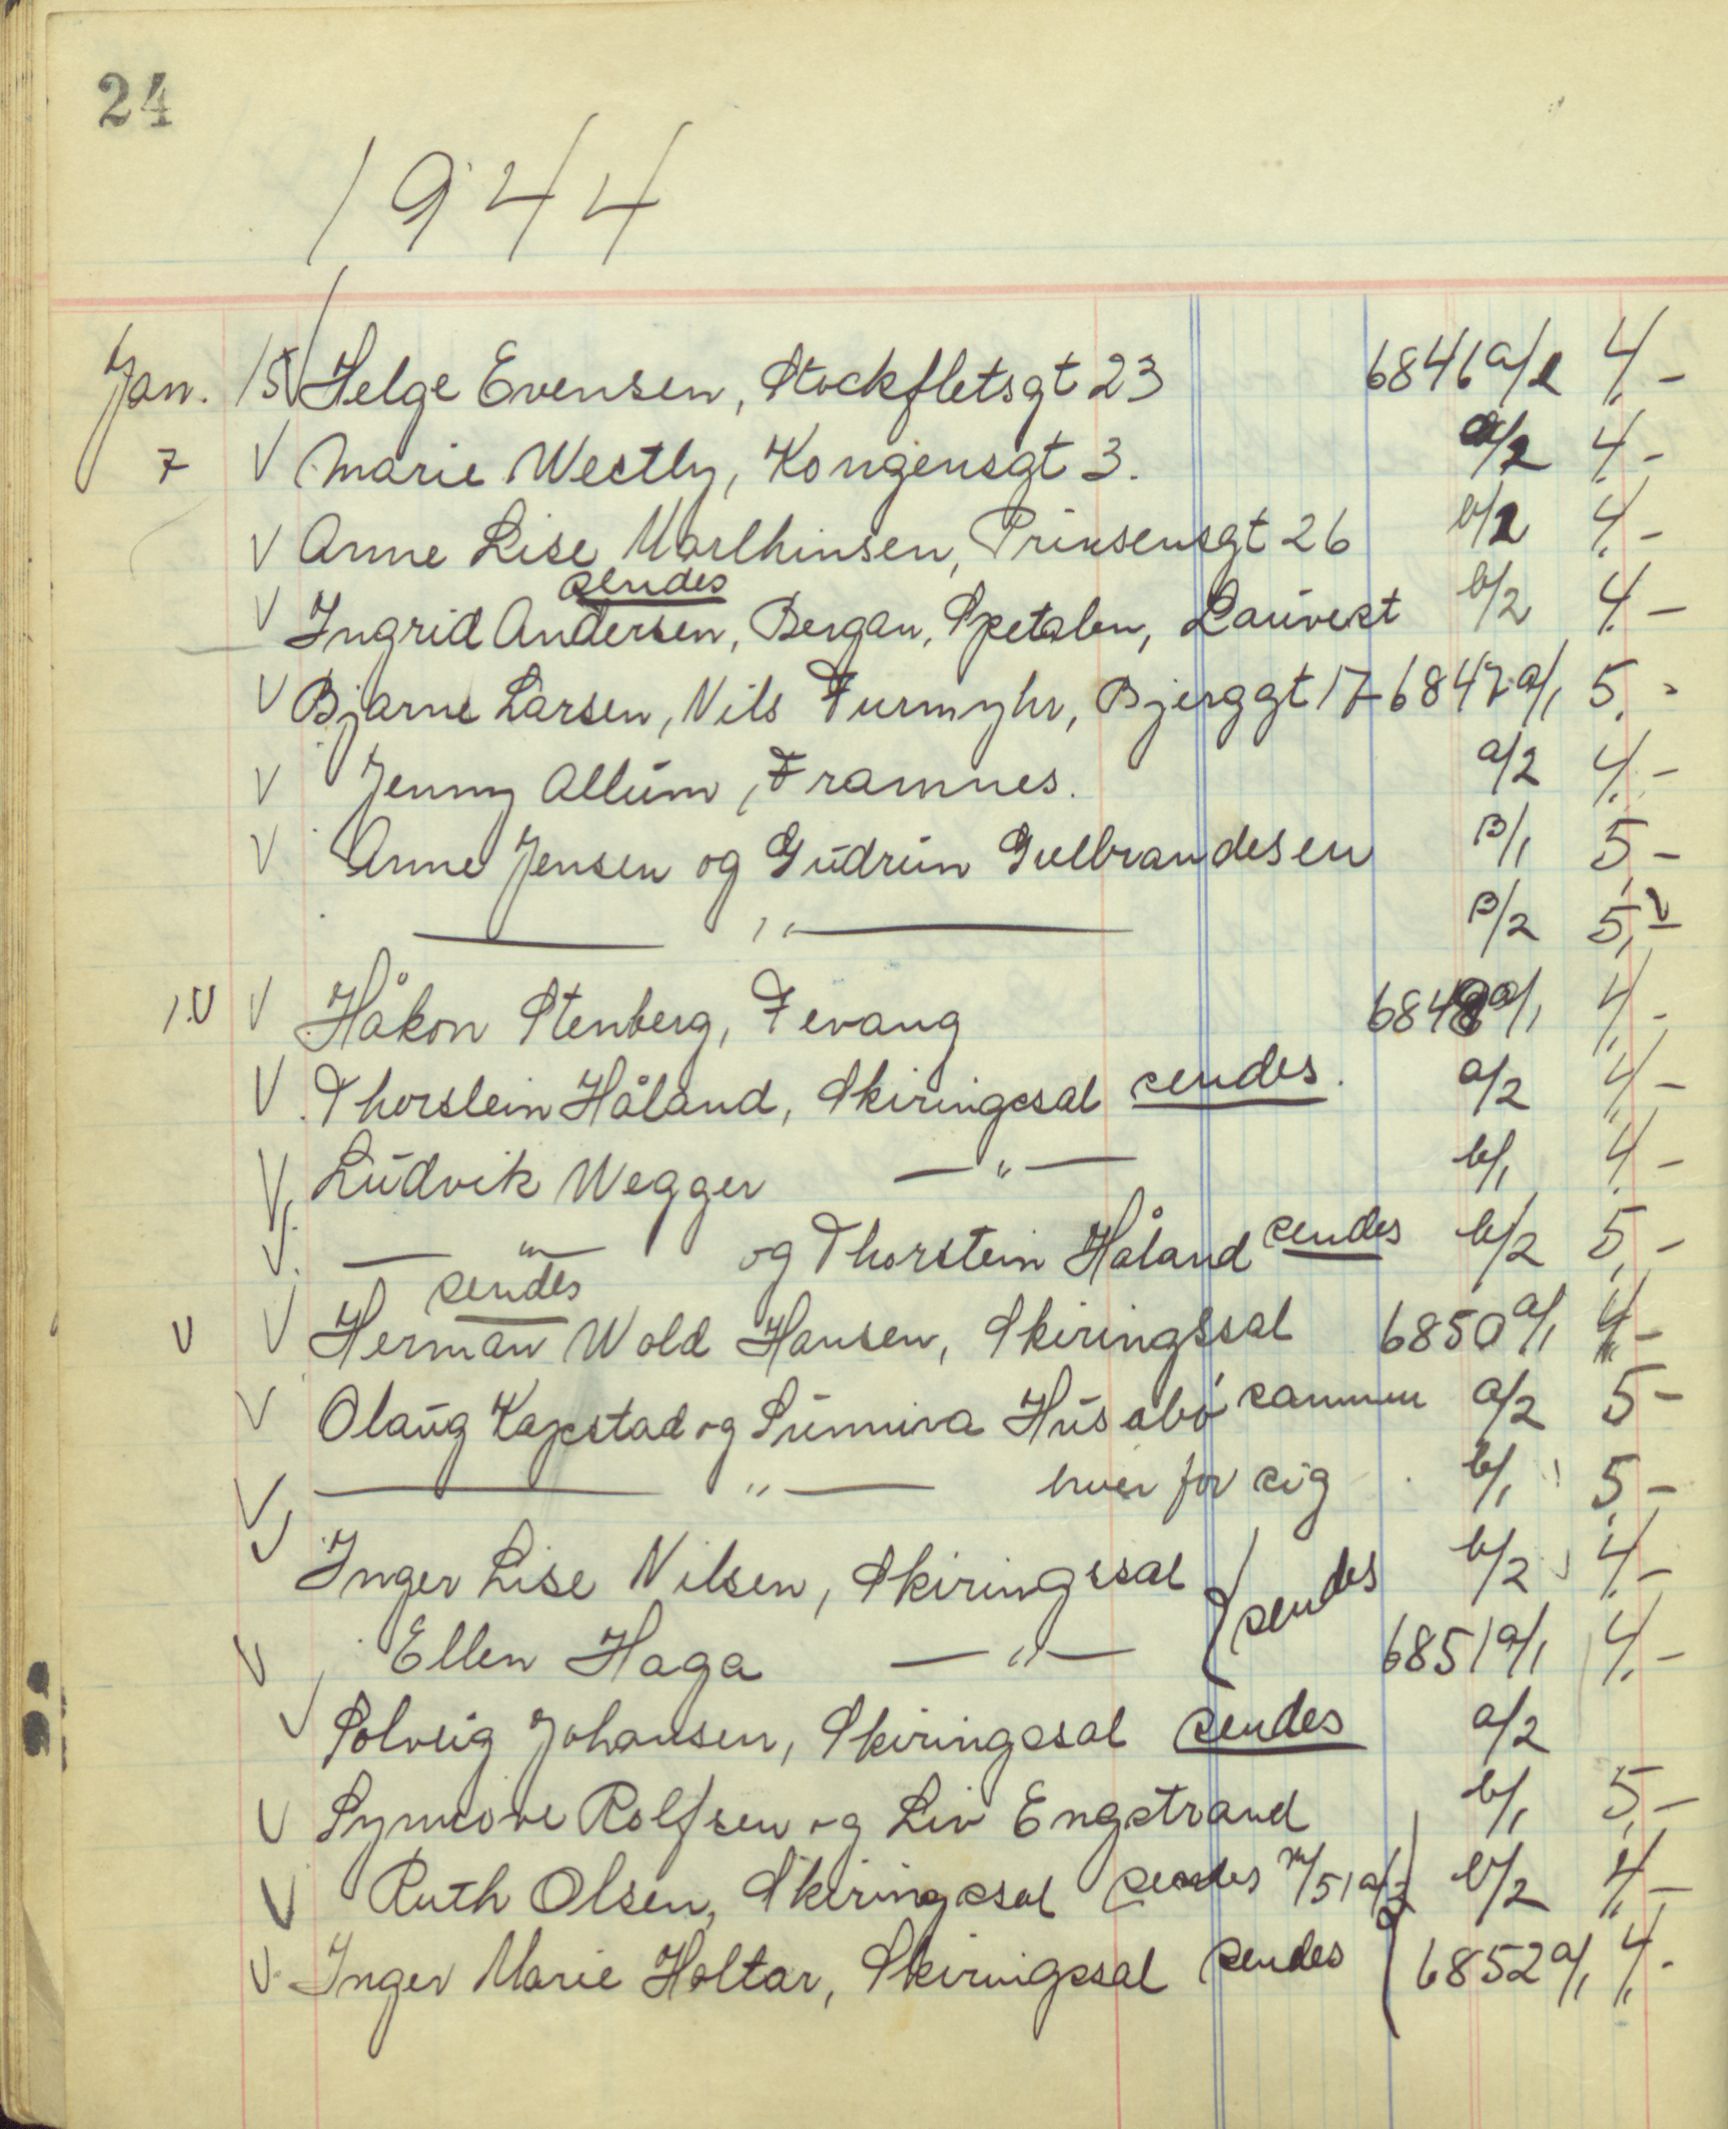 24
1944
Jan. 15 V Helge Evensen, Stockfletsgt 23 6846 a/1 4,-
7 V Marie Westby, Kongensgt 3. a/2 4,-
V Anne Lise Marthinsen, Prinsensgt 26 b/1 4,-
sendes
V Ingrid Andersen, Bergan, Spetalen, b/2 4,-
V Bjarne Larsen, Nils Furmyhr, Bjerggt 17 6847 a/1 5,-
V Jenny Allum, Framnes. a/2 4,-
V Anne Jensen og Gudrun Gulbrandsen B/1 5,-
— " — B/2 5,-
V V Håkon Stenberg, Fevang 6848 a/1 4,-
V Thorstein Håland, Skiringssal sendes. a/2 4,-
V Ludvik Wegger — " — b/1 4,-
V — " — og Thorstein Håland sendes b/2 5,-
sendes
V V Herman Wold Hansen, Skiringssal 6850 a/1 4,-
V Olaug Kapstad og Sunniva Husabø sammen a/2 5,-
V — " — hver for sig b/1 5,-
V Inger Lise Nilsen, Skiringssal } sendes b/2 4,-
V Ellen Haga — " — 6851 a/1 4,-
V Solveig Johansen, Skiringssal sendes a/2
V Synnøve Rolfsen og Liv Engstrand b/1 5,-
V Ruth Olsen, Skiringssal sendes 51 a/2 b/2 4,-
V Inger Marie Holtar, Skiringssal sendes } 6852 a/1 4,-